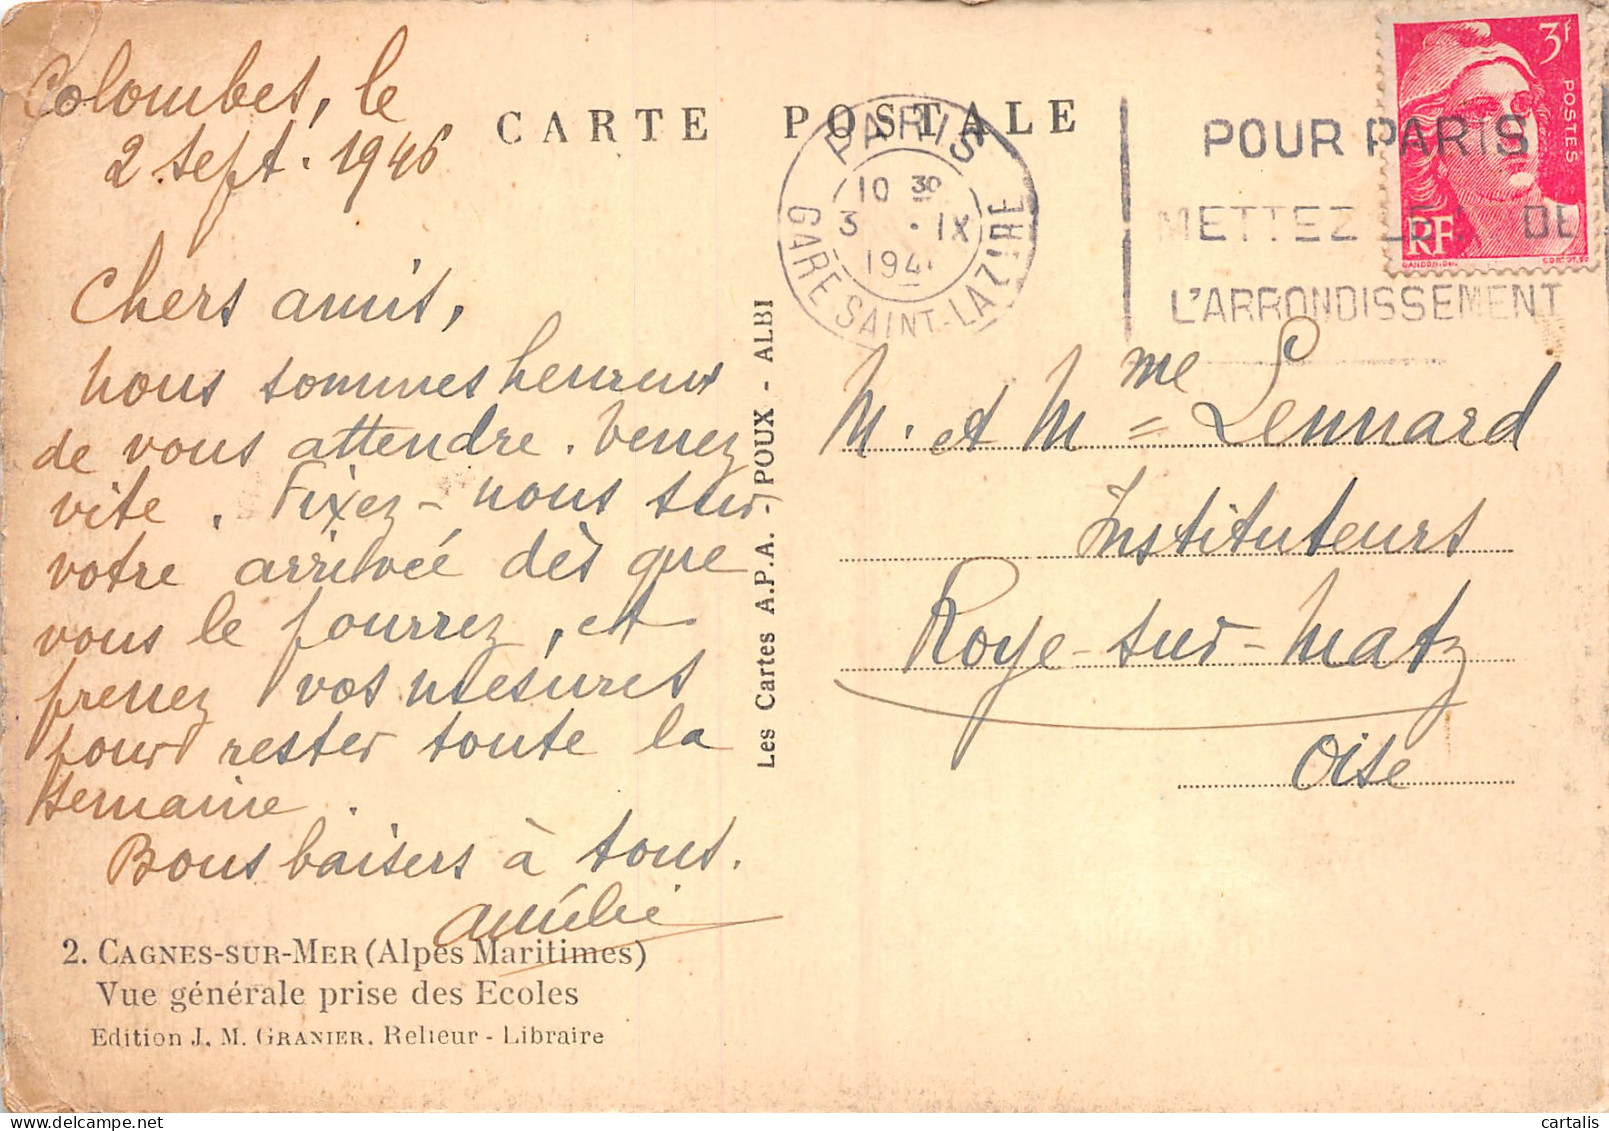 Colombes, le
2 sept. 1946
CARTE POSTALE
Chers amis,
Nous sommes heureux
de vous attendre. Venez
vite. Fixez-nous sur
votre arrivée dès que
vous le pourrez, et
prenez vos mesures
pour rester toute la
semaine.
Bons baisers à tous.
Amélie
2. CAGNES-SUR-MER (Alpes Maritimes)
Vue générale prise des Ecoles
Edition J. M. GRANIER. Relieur - Libraire
Les Cartes A.P.A. - POUX - ALBI
PARIS
10 30
3 . IX
194
GARE SAINT-LAZARE
POUR PARIS
METTEZ DE
L'ARRONDISSEMENT
3F
POSTES
RF
GANDON
M. et Mme Lennard
Instituteurs
Roye-sur-Matz
Oise
cartalis